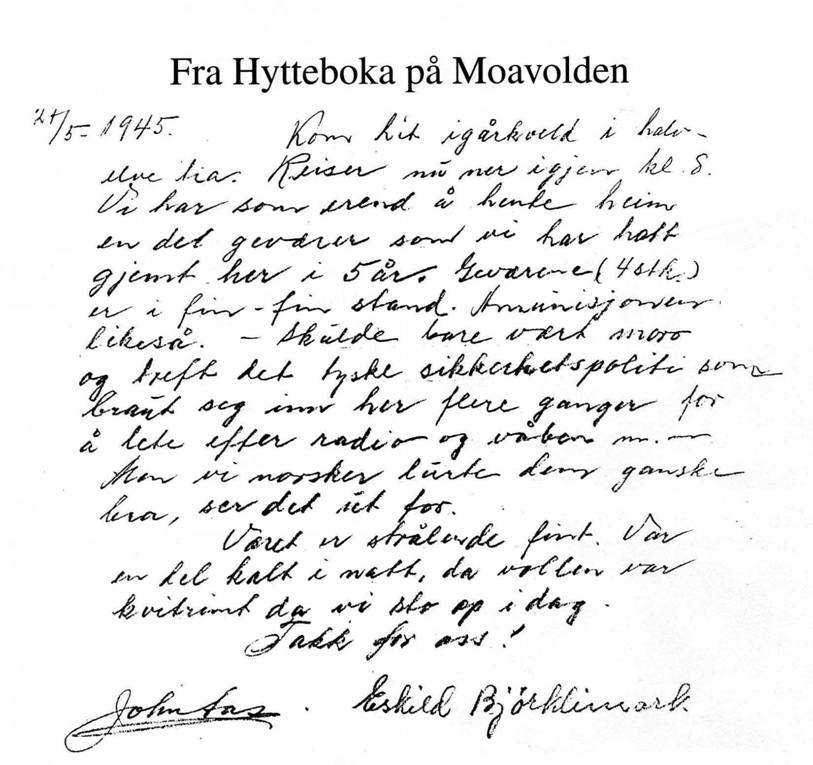 Fra Hytteboka på Moavolden
24/5- 1945. Kom hit igårkveld i halv-
elve tia. Reiser nu ner igjen kl. 8.
Vi har som erend å hente heim
en del geværer som vi har hatt
gjemt her i 5 år. Geværene (4 stk.)
er i fin-fin stand. Amunisjonen
likeså. – Skulde bare vært moro
og treft det tyske sikkerhetspoliti som
braut seg inn her flere ganger for
å lete efter radio og våben m.m.
Men vi norsker lurte dem ganske
bra, ser det ut for.
Været er strålende fint. Var
en del kalt i natt, da vollen var
kvitrimt da vi sto op i dag.
Takk for oss!
John Aas. Eskild Björklimark